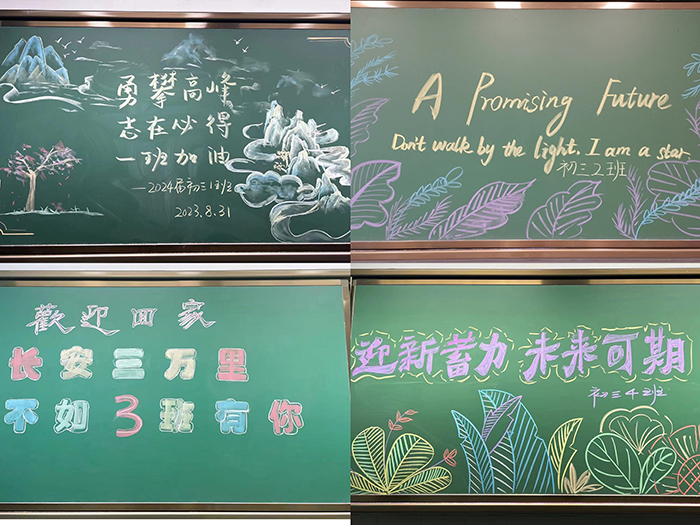 勇攀高峰
志在必得
一班加油
——2024届初三1班
2023.8.31
A Promising Future
Don't walk by the light. I am a star
初三2班
歡迎回家
长安三万里
不如3班有你
迎新蓄力 未来可期
初三4班